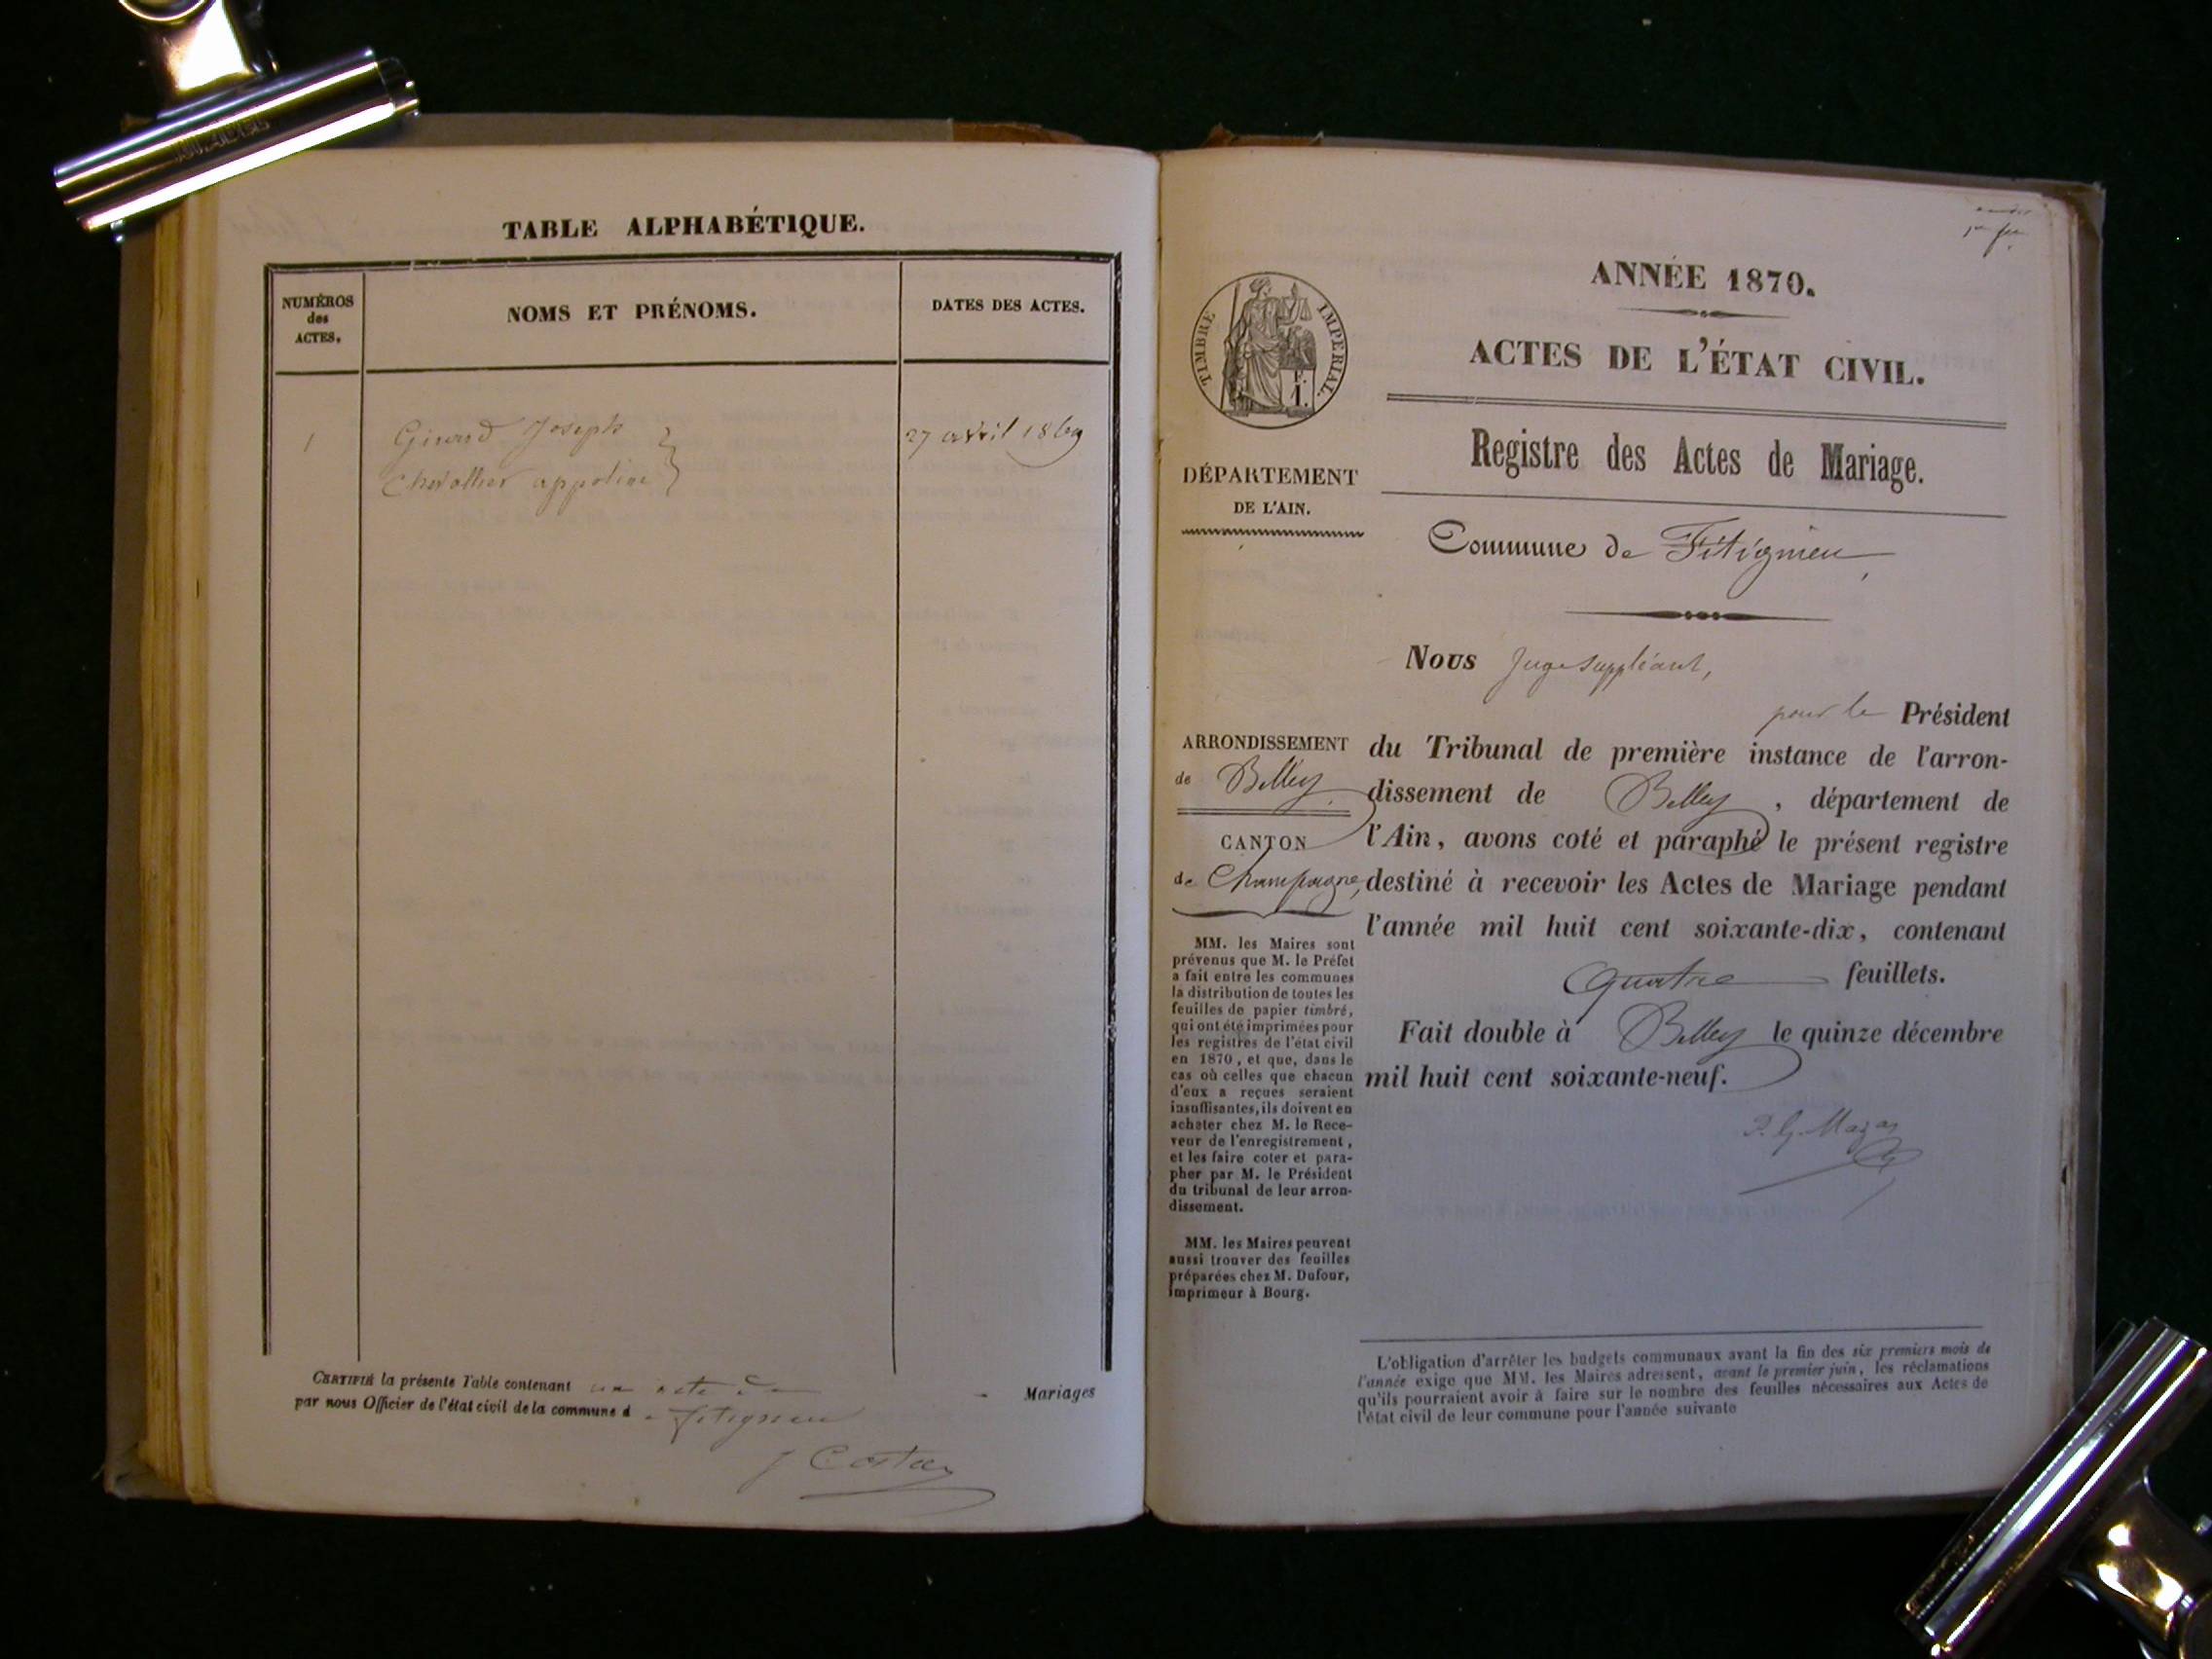 TABLE ALPHABÉTIQUE.
NUMÉROS
des
ACTES,
NOMS ET PRÉNOMS.
DATES DES ACTES.
1
Girard Joseph
27 avril 1869
Chevallier appoline
CERTIFIÉ la présente Table contenant un acte de Mariages
par nous Officier de l'état civil de la commune d e Fitignieu
J Costaz
ANNÉE 1870.
ACTES DE L'ÉTAT CIVIL.
TIMBRE IMPERIAL.
F.
1.
Registre des Actes de Mariage.
DÉPARTEMENT
DE L'AIN.
Commune de Fitignieu,
Nous Juge suppléant,
pour le Président
du Tribunal de première instance de l'arron-
dissement de Belley, département de
l'Ain, avons coté et paraphé le présent registre
destiné à recevoir les Actes de Mariage pendant
l'année mil huit cent soixante-dix, contenant
quatre feuillets.
Fait double à Belley le quinze décembre
mil huit cent soixante-neuf.
ARRONDISSEMENT
de Belley.
CANTON
de Champagne,
MM. les Maires sont
prévenus que M. le Préfet
a fait entre les communes
la distribution de toutes les
feuilles de papier timbré,
qui ont été imprimées pour
les registres de l'état civil
en 1870, et que, dans le
cas où celles que chacun
d'eux a reçues seraient
insuffisantes, ils doivent en
acheter chez M. le Rece-
veur de l'enregistrement,
et les faire coter et para-
pher par M. le Président
du tribunal de leur arron-
dissement.
MM. les Maires peuvent
aussi trouver des feuilles
préparées chez M. Dufour,
imprimeur à Bourg.
L'obligation d'arrêter les budgets communaux avant la fin des six premiers mois de
l'année exige que MM. les Maires adressent, avant le premier juin, les réclamations
qu'ils pourraient avoir à faire sur le nombre des feuilles nécessaires aux Actes de
l'état civil de leur commune pour l'année suivante